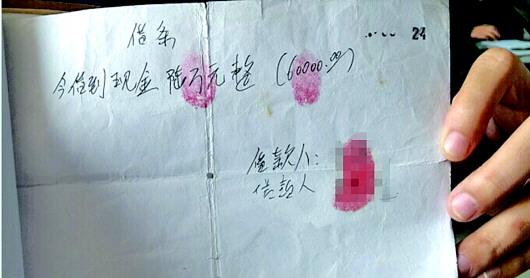 24
借条
今借到现金陆万元整 (60000.00)
借款人: